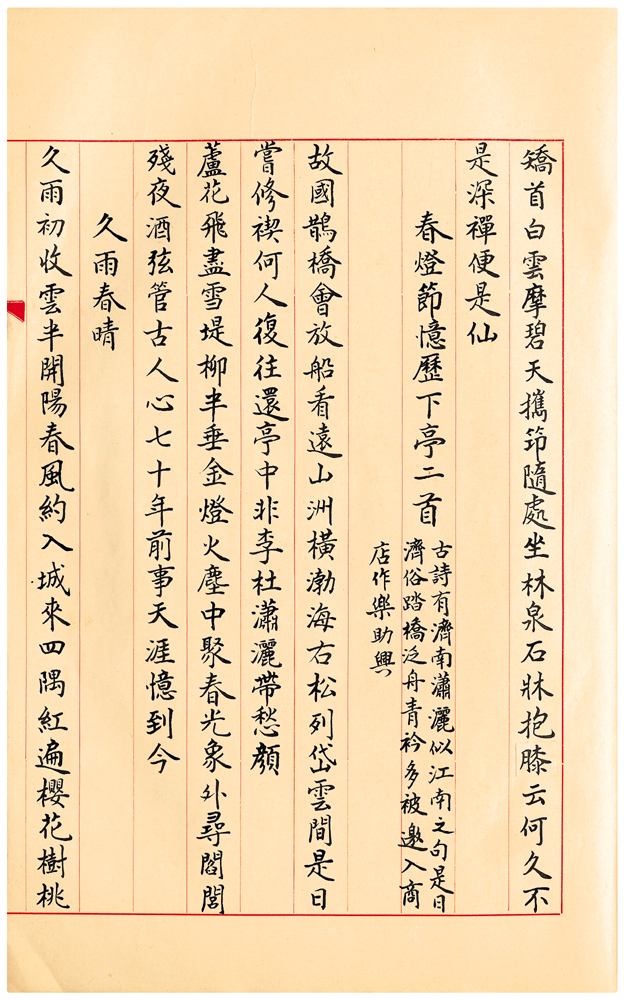 矯首白雲摩碧天攜笻隨處坐林泉石牀抱膝云何久不
是深禪便是仙
春燈節憶歷下亭二首
古詩有濟南瀟灑似江南之句是日
濟俗踏橋泛舟青衿多被邀入商
店作樂助興
故國鵲橋會放船看遠山洲橫渤海右松列岱雲間是日
嘗修禊何人復往還亭中非李杜瀟灑帶愁顏
蘆花飛盡雪堤柳半垂金燈火塵中聚春光象外尋閤閭
殘夜酒弦管古人心七十年前事天涯憶到今
久雨春晴
久雨初收雲半開陽春風約入城來四隅紅遍櫻花樹桃